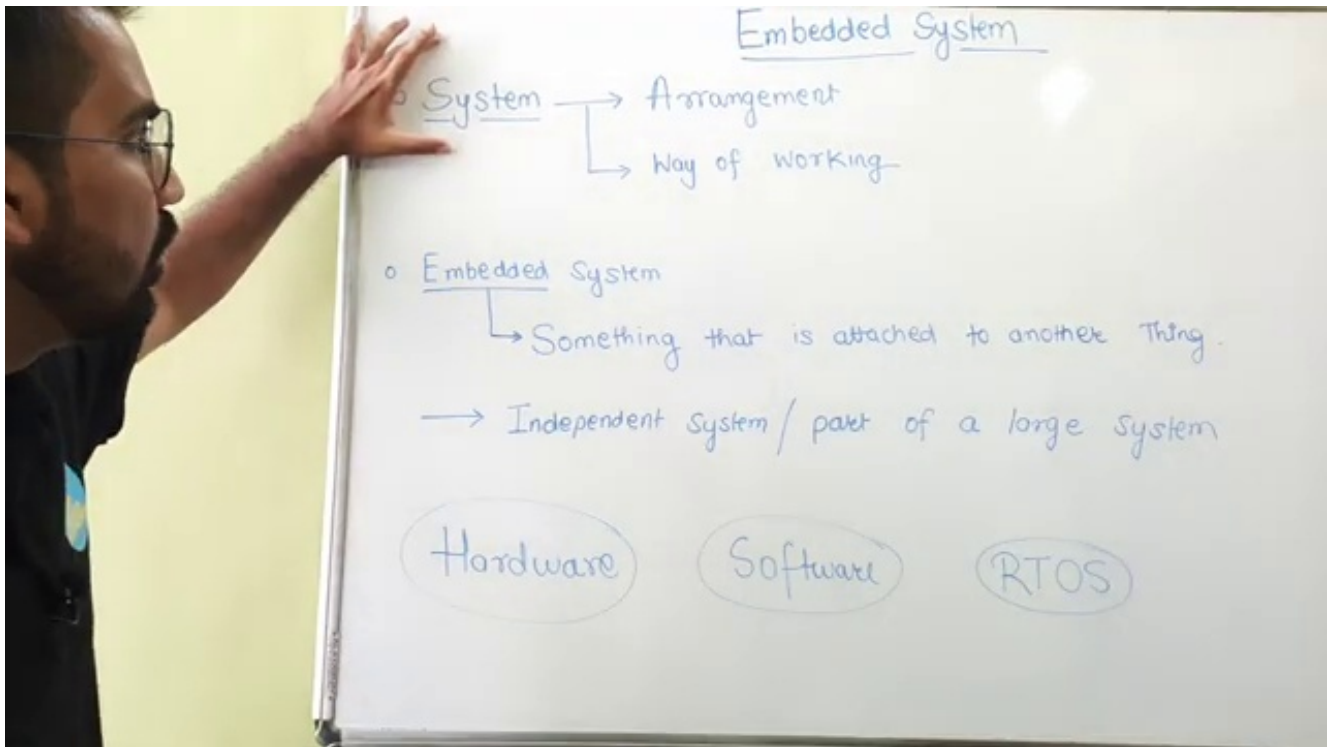 Embedded System
o System → Arrangement
→ Way of working
o Embedded System
→ Something that is attached to another Thing.
→ Independent System / part of a large system
Hardware Software RTOS